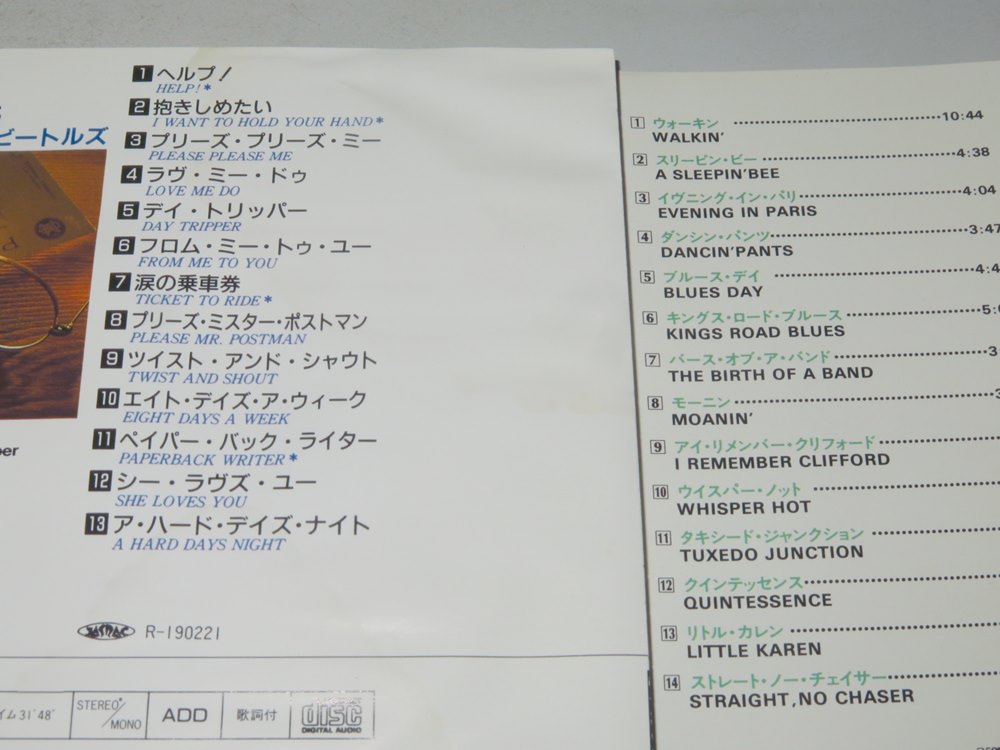 ビートルズ
1 ヘルプ！
HELP! *
2 抱きしめたい
I WANT TO HOLD YOUR HAND *
3 プリーズ・プリーズ・ミー
PLEASE PLEASE ME
4 ラヴ・ミー・ドゥ
LOVE ME DO
5 デイ・トリッパー
DAY TRIPPER
6 フロム・ミー・トゥ・ユー
FROM ME TO YOU
7 涙の乗車券
TICKET TO RIDE *
8 プリーズ・ミスター・ポストマン
PLEASE MR. POSTMAN
9 ツイスト・アンド・シャウト
TWIST AND SHOUT
10 エイト・デイズ・ア・ウィーク
EIGHT DAYS A WEEK
11 ペイパー・バック・ライター
PAPERBACK WRITER *
12 シー・ラヴズ・ユー
SHE LOVES YOU
13 ア・ハード・デイズ・ナイト
A HARD DAYS NIGHT
R-190221
イム31'48"
STEREO*/MONO
ADD
歌詞付
DISC
DIGITAL AUDIO
1 ウォーキン 10:44
WALKIN'
2 スリーピン・ビー 4:38
A SLEEPIN'BEE
3 イヴニング・イン・パリ 4:04
EVENING IN PARIS
4 ダンシン・パンツ 3:47
DANCIN'PANTS
5 ブルース・デイ 4:4
BLUES DAY
6 キングス・ロード・ブルース 5:
KINGS ROAD BLUES
7 バース・オブ・ア・バンド 3
THE BIRTH OF A BAND
8 モーニン
MOANIN'
9 アイ・リメンバー・クリフォード
I REMEMBER CLIFFORD
10 ウイスパー・ノット
WHISPER HOT
11 タキシード・ジャンクション
TUXEDO JUNCTION
12 クインテッセンス
QUINTESSENCE
13 リトル・カレン
LITTLE KAREN
14 ストレート・ノー・チェイサー
STRAIGHT, NO CHASER